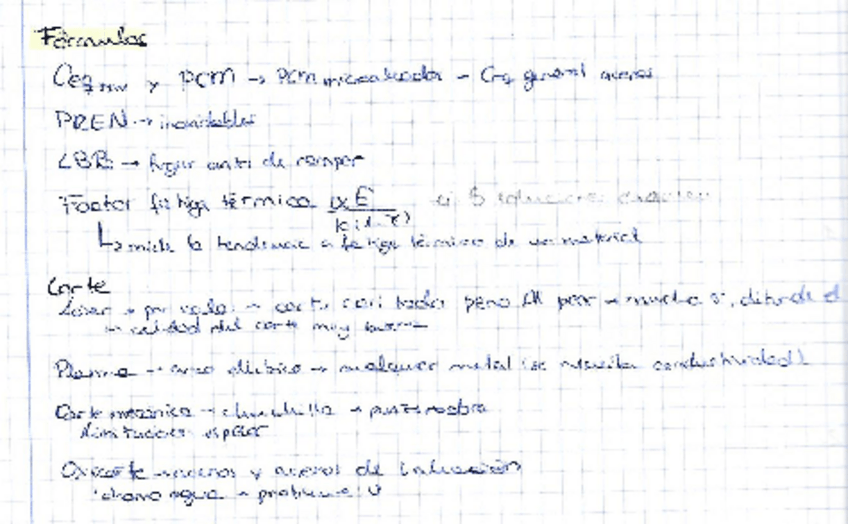 Fórmulas
Ceq y PCM → PCM microaleados - Ceq general aceros
PREN → inoxidables
LBB → fugar antes de romper
Factor fatiga térmica αE
K(1-
↳ mide la tendencia a fatiga térmica de un material
Corte
Laser → → corta casi todo pero Al peor → mucha
→ calidad del corte muy buena
Plasma → arco eléctrico → cualquier metal (se necesita conductividad)
Corte mecánico → cuchilla →
limitación espesor
Oxicorte → aceros y aceros de
chorro agua → problema: